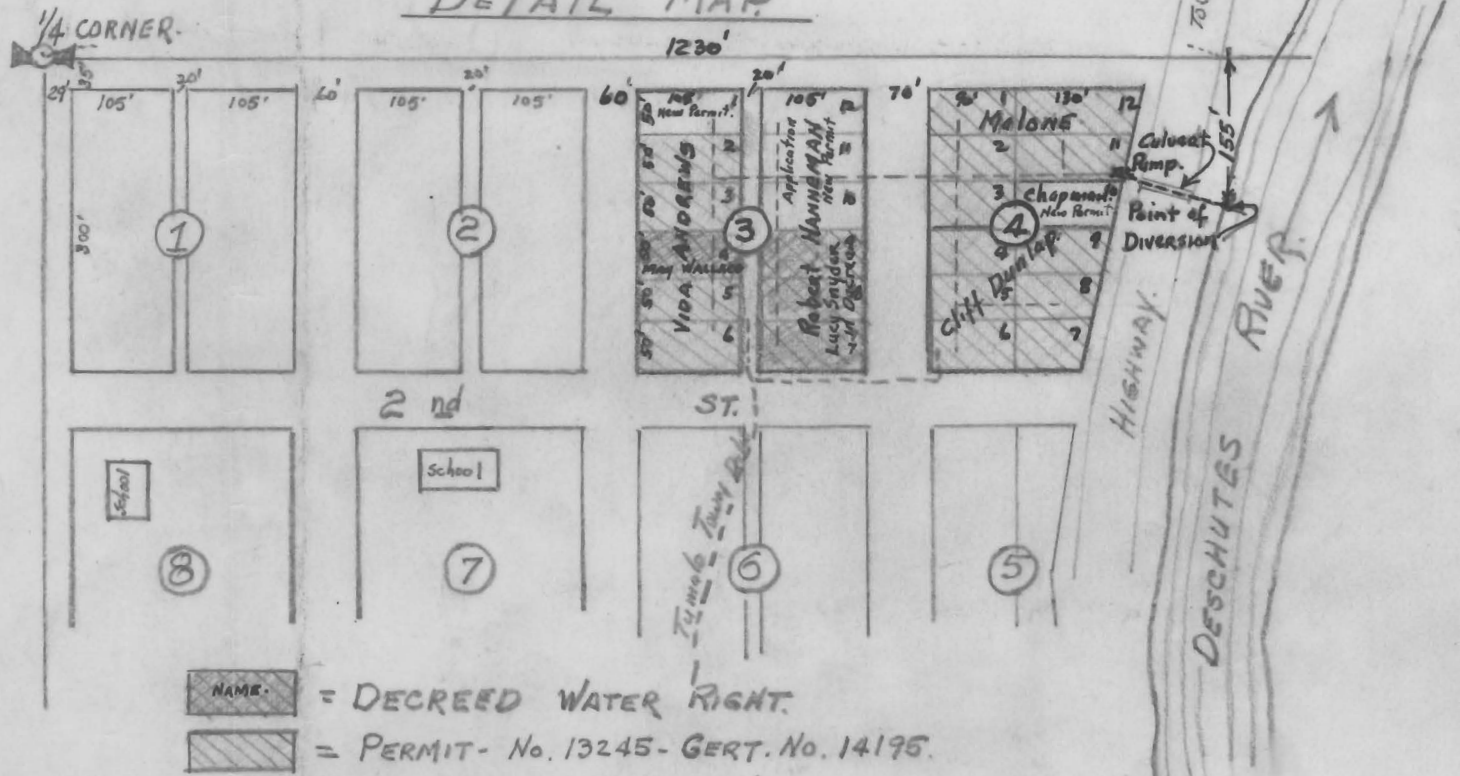 DETAIL MAP
1/4 CORNER.
1230'
29'
35'
105'
20'
105'
60'
105'
20'
105'
60'
105'
20'
105'
70'
90'
1
130'
12
300'
1
2
3
4
50'
New Permit.
50'
2
50'
3
50'
50'
50'
6
VIDA ANDREWS
MAY WALLACE
Application
New Permit
12
11
10
Robert HANNEMAN
Lucy Snyder
MALONE
2
11
3
Chapman.
New Permit
9
Cliff Dunlap.
5
8
6
7
Culvert
Pump.
Point of
DIVERSION
155'
HIGHWAY.
DESCHUTES RIVER.
2nd ST.
School
School
Tumalo Town
8
7
6
5
NAME. = DECREED WATER RIGHT.
= PERMIT - No. 13245 - CERT. No. 14195.